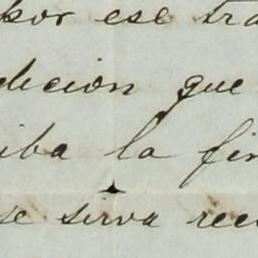 por ese tra
dicion que
iba la fir
se sirva reci